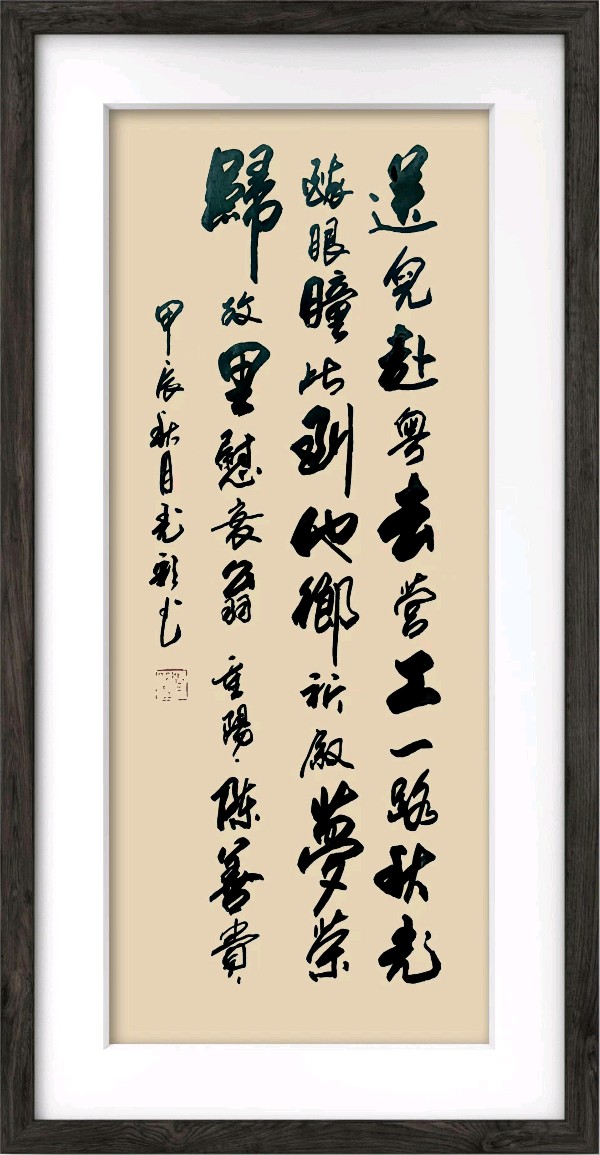 送兒赴粵去營工一路秋光
醉眼瞳此到他鄉祈啟夢榮
歸故里慰衰翁 重陽 陳善貴
甲辰秋月书